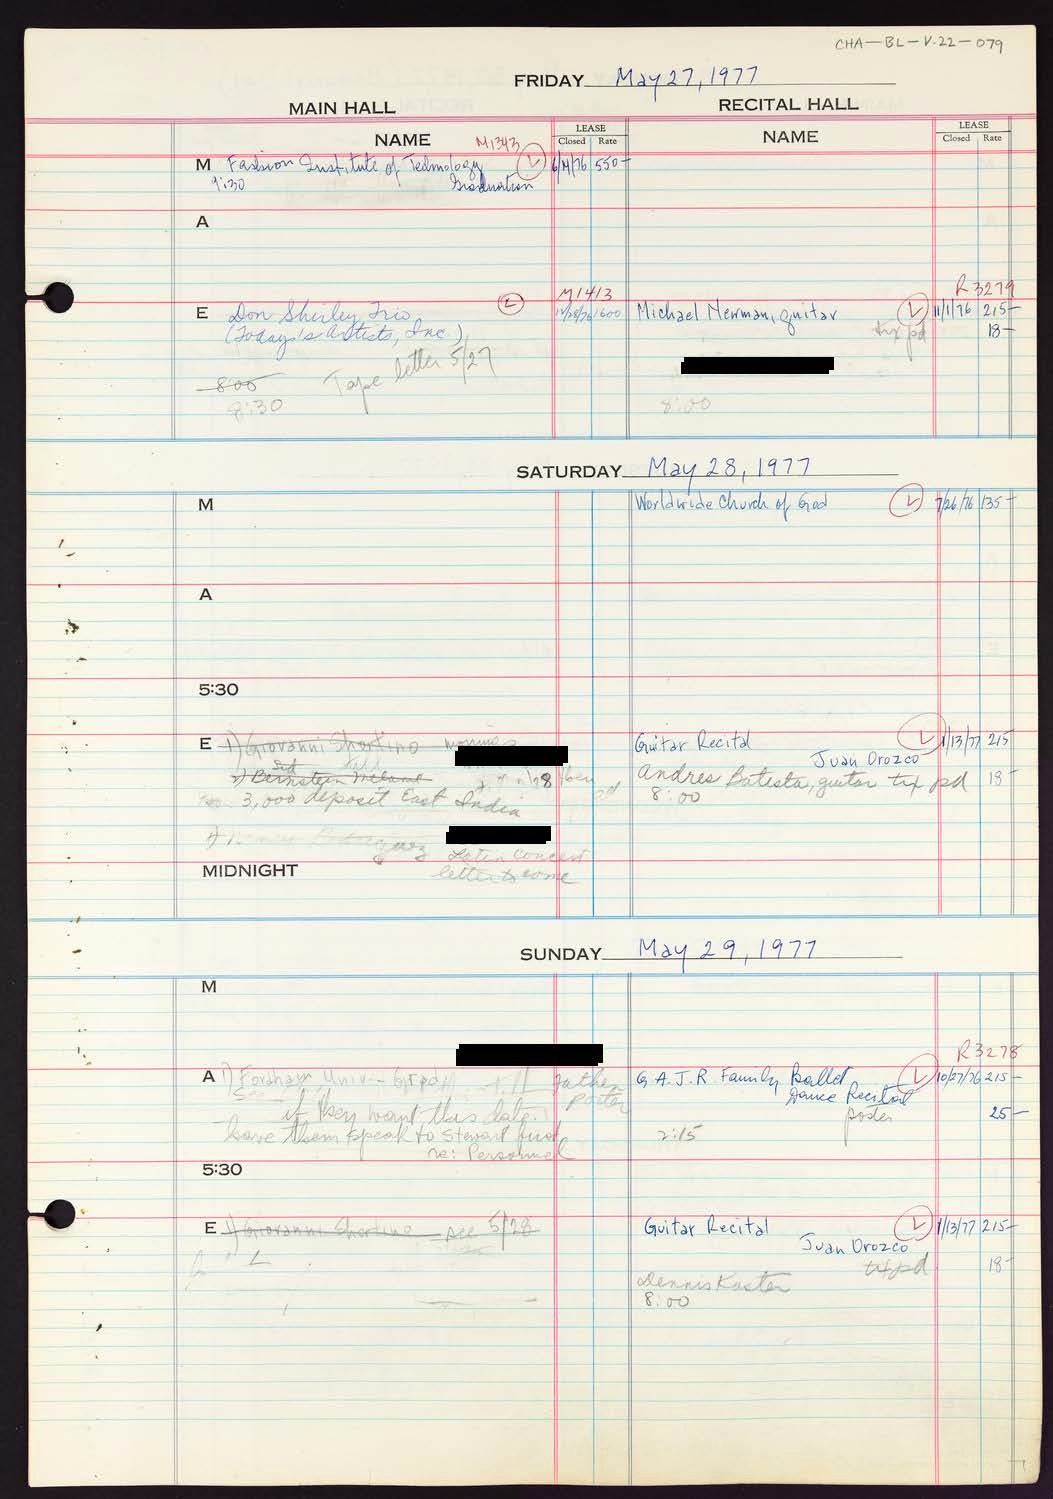 CHA-BL-V.22-079
FRIDAY May 27, 1977
MAIN HALL
RECITAL HALL
NAME
M1343
LEASE
Closed Rate
NAME
LEASE
Closed Rate
M Fashion Institute of Technology L 550-
9:30 Graduation
A
M1413
R3279
E Don Shirley Trio L 1600
(Today's Artists, Inc.)
Tape letter 5/27
8:00
8:30
Michael Newman, guitar L 11/1/76 215-
tix pd 18-
8:00
SATURDAY May 28, 1977
M
Worldwide Church of God L 7/26/76 135-
A
5:30
E 1) Giovanni Shortino
2) Bernstein
3,000 deposit East India
Latin Concert
letter to come
Guitar Recital L 1/13/77 215
Juan Orozco
Andres Batista, guitar tix pd 18-
8:00
MIDNIGHT
SUNDAY May 29, 1977
M
R3278
A 1) Fordham Univ - Grad
if they want this date.
have them speak to Stewart
re: Personnel
G A.J.R. Family Ballet L 10/27/76 215-
Dance Recital
poster 25-
2:15
5:30
E 1) Giovanni Shortino see 5/28
Guitar Recital L 1/13/77 215-
Juan Orozco
tix pd 18-
Dennis Koster
8:00